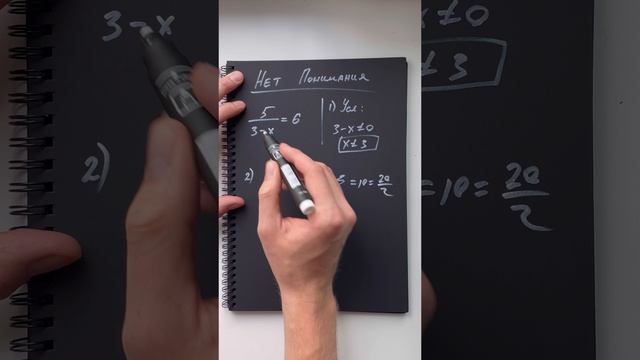 Нет Понимания
5/(3-x) = 6
1) Усл:
3-x≠0
x≠3
2)
= 10 = 20/2